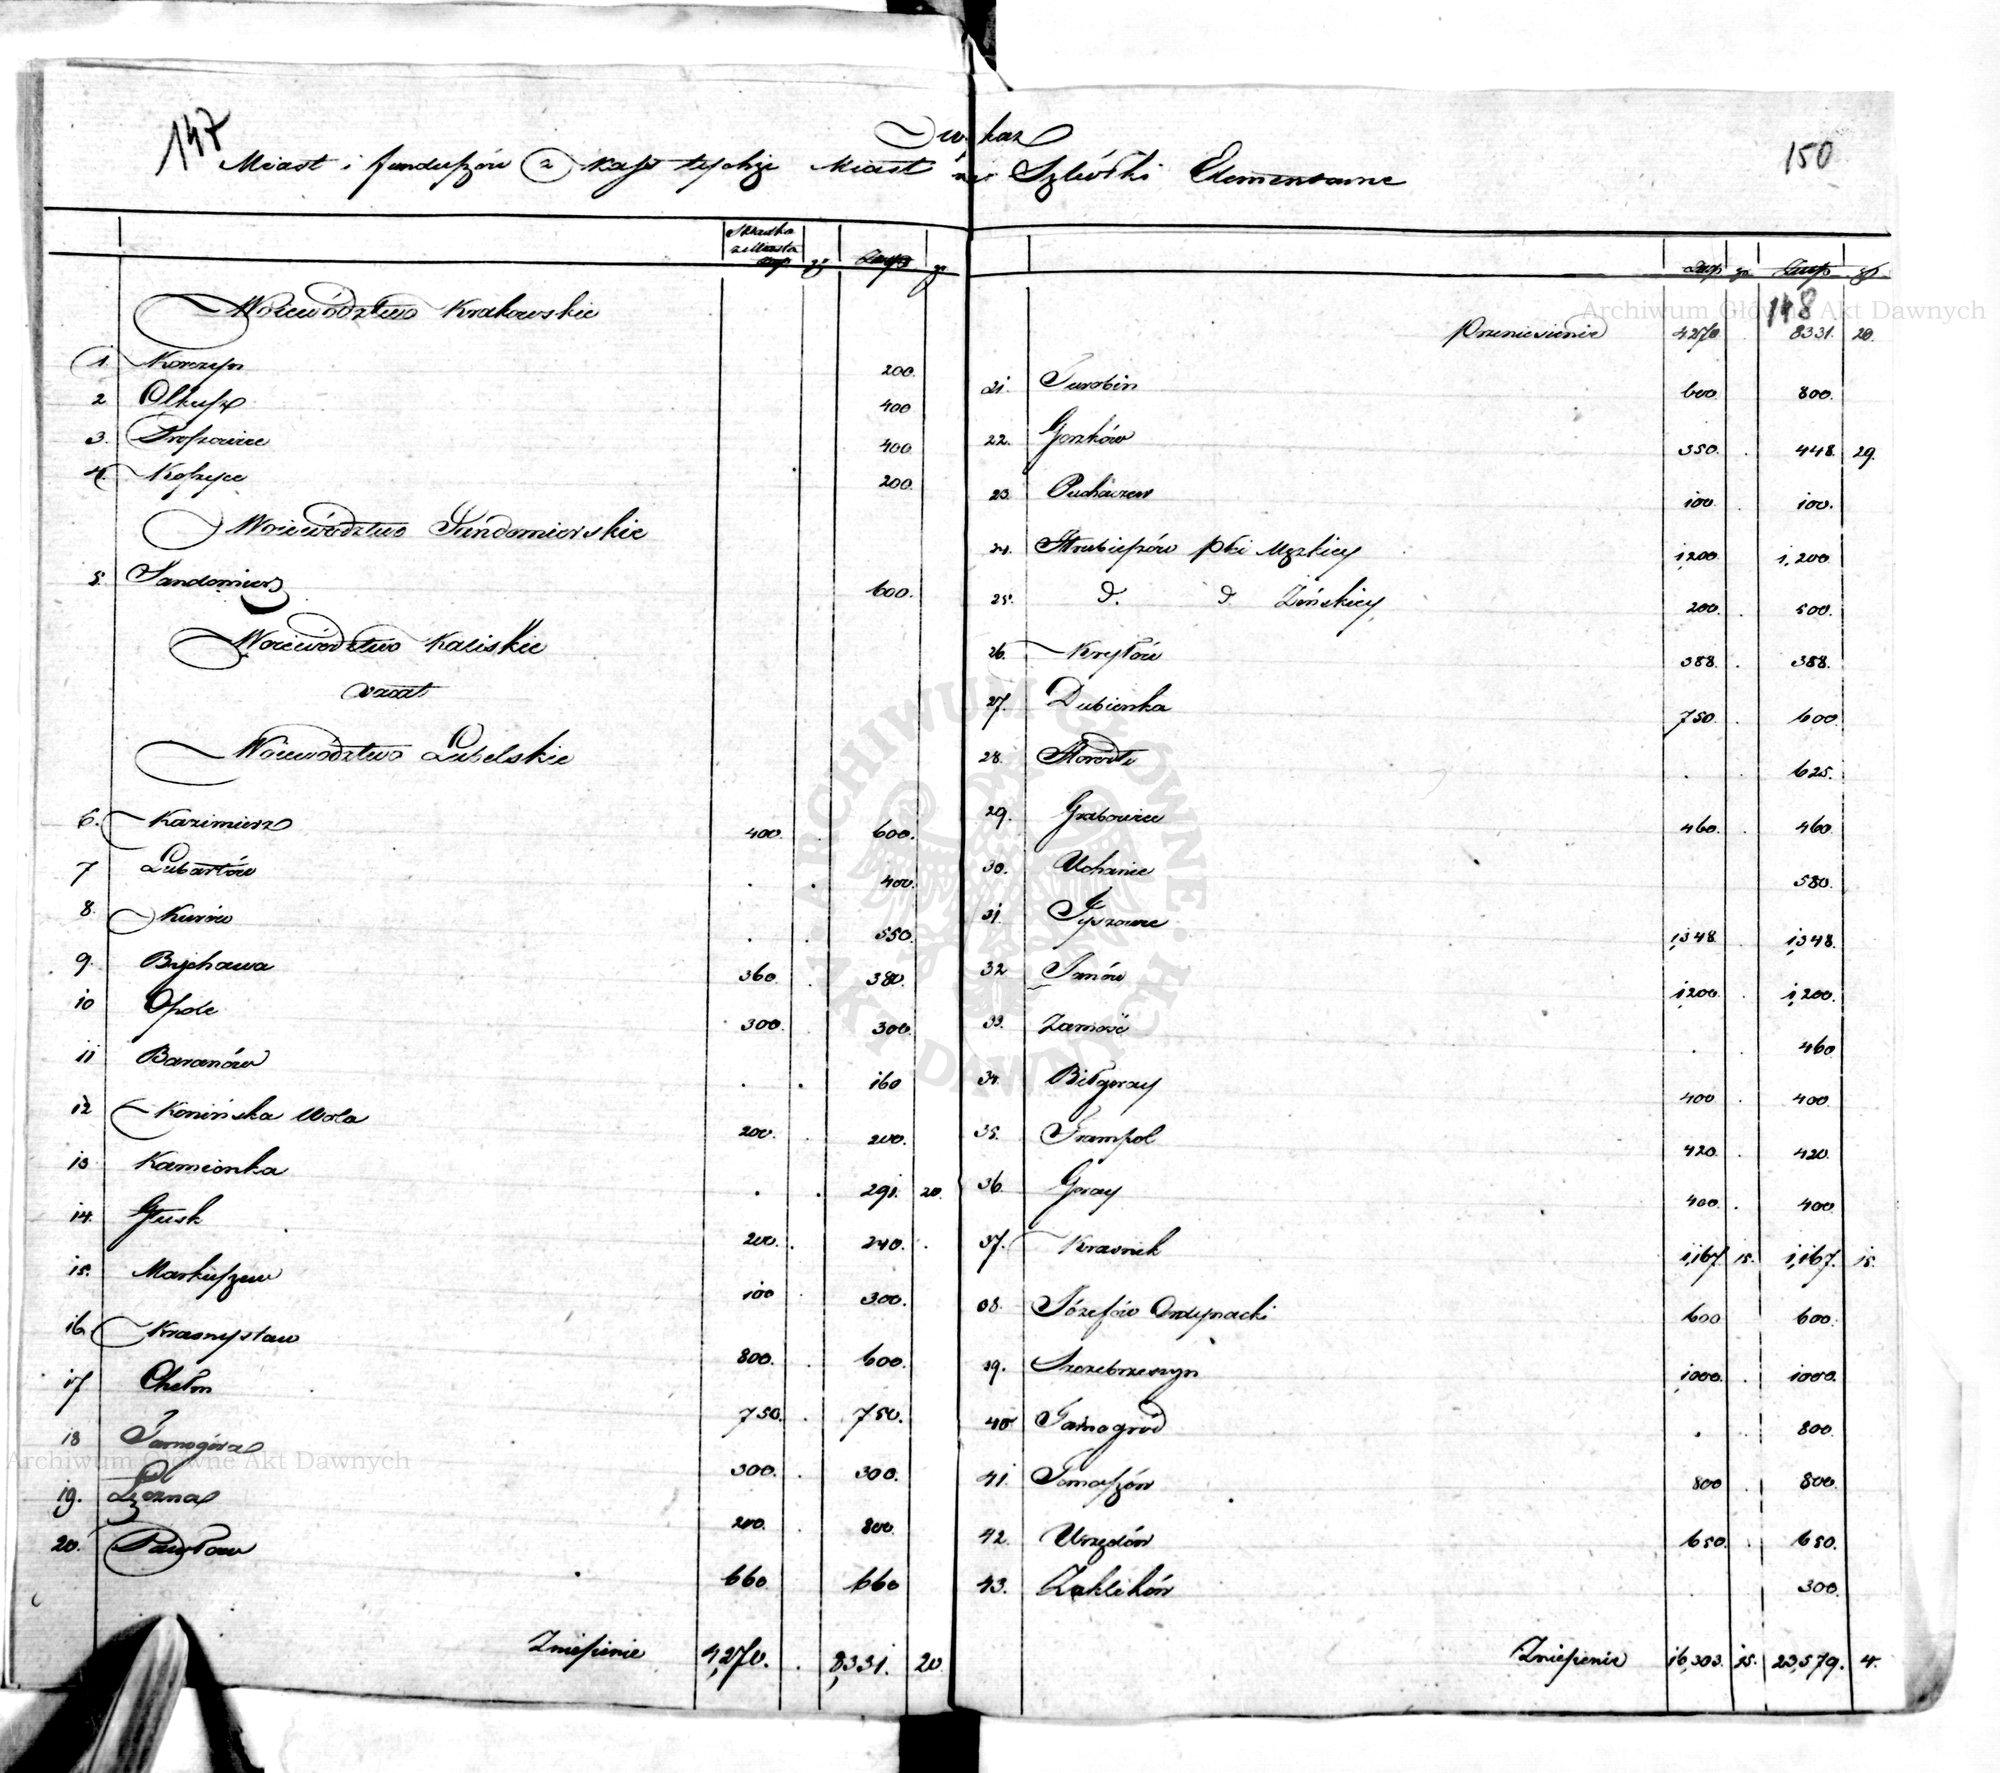 147
Wykaz
150
Miast i funduszów z kass tychże Miast na Szkółki Elementarne
Składka z Miasta Złotp gr Złotp gr
Województwo Krakowskie
1. Korczyn 200.
2 Olkusz 400
3. Proszowice 400
4. Koszyce 200.
Województwo Sandomierskie
5. Sandomierz 600.
Województwo Kaliskie
vacat
Województwo Lubelskie
6. Kazimierz 400. . 600.
7 Lubartów . . 400.
8. Kurów . . 550.
9. Bychawa 360 . 380.
10 Opole 300. . 300.
11 Baranów . . 160
12 Konińska Wola 200. . 200.
13 Kamionka . . 291. 20.
14. Głusk 200. . 240. .
15. Markuszew 100 . 300.
16 Krasnystaw 800. . 600.
17 Chełm 750. . 750.
18 Tarnogóra 300. . 300.
19. Łęczna 200. . 800.
20. Pawłow 660 . 660
Zniesienie 4,270. . 8,331. 20
Złotp gr. Złotp gr.
148
Przeniesienie 4270 . 8331. 20.
21. Turobin 600. . 800.
22. Gorzków 350. . 448. 29.
23. Puchaczew 100. . 100.
24. Hrubieszów płci Męzkiey 1,200. . 1,200
25. d. d Żeńskiey 200. . 500.
26. Kryłów 388. . 388.
27. Dubienka 750. . 600.
28. Horodło . . 625.
29. Grabowiec 460. . 460
30. Uchanie 580.
31. Tyszowce 1,348 1,348.
32 Janów 1,200. . 1,200.
33. Zamość . . 460
34. Biłgoray 400 . 400.
35. Frampol 420. . 420.
36. Goray 400. . 400
37. Krasnik 1,167 15. 1,167. 15.
38. Józefów Ordynacki 600 600.
39. Szczebrzeszyn 1000. . 1000.
40 Tarnogród . 800.
41. Tomaszów 800 . 800.
42. Urzędów 650. . 650.
43. Zaklików . 300.
Zniesienie 16,303. 15. 23,579. 4.
Archiwum Główne Akt Dawnych
Archiwum Główne Akt Dawnych
ARCHIWUM GŁÓWNE AKT DAWNYCH